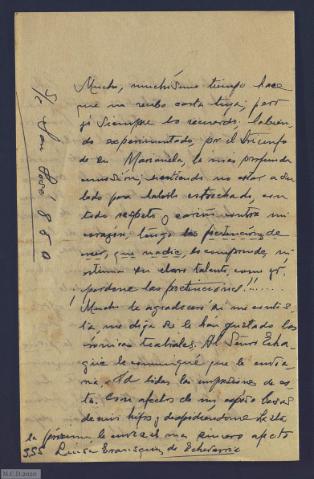 Mucho, muchísimo tiempo hace
que no recibo carta tuya, pero
yo siempre le recuerdo, habien-
do experimentado, por el triunfo
de su Marianela, la mas profunda
emoción, sintiendo no estar a su
lado para haberle estrechado, con
todo respeto y cariño contra mi
corazón, tengo la pretención de
creer, que nadie, le comprende, ni
estima su claro talento, como yo.
perdone las pretenciones!!......
Mucho le agradeceré si me contes-
ta, me diga si le han gustado las
crónicas teatrales. Al Señor Echa-
güe le comuniqué que le envia-
ria todas las impresiones de es-
ta. Con afectos de mi esposo besos
de mis hijos y despidiéndome hasta
la próxima le envia el mas sincero afecto
S.S.S. Luisa de Echevarria
S/c San José 850